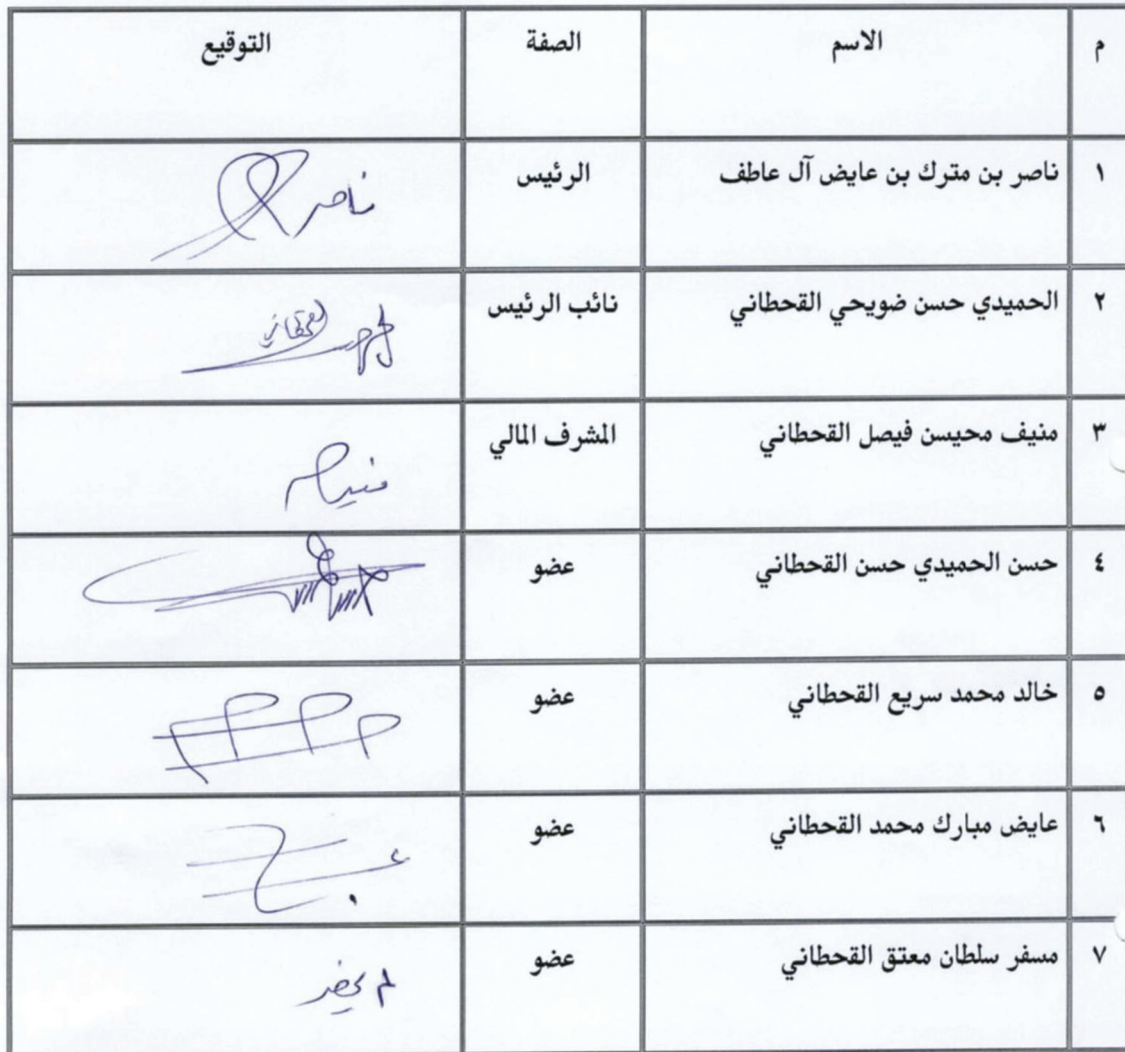 م الاسم الصفة التوقيع
١ ناصر بن مترك بن عايض آل عاطف الرئيس ناصر
٢ الحميدي حسن ضويحي القحطاني نائب الرئيس القحطاني
٣ منيف محيسن فيصل القحطاني المشرف المالي
٤ حسن الحميدي حسن القحطاني عضو
٥ خالد محمد سريع القحطاني عضو
٦ عايض مبارك محمد القحطاني عضو
٧ مسفر سلطان معتق القحطاني عضو لم يحضر